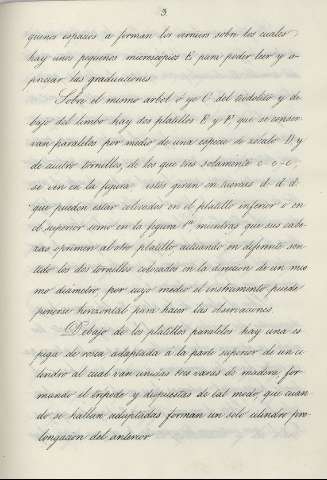 3
quenos espacios a forman los verniers sobre los cuales
hay unos pequeños microscopios E para poder leer y a-
preciar las graduaciones
Sobre el mismo arbol ó eje C del teodolito y de
bajo del limbo hay dos platillos F y F' que se conser
van paralelos por medio de una especie de zocalo D y
de cuatro tornillos, de los que tres solamente c-c-c,
se ven en la figura estos giran en tuercas d. d. d.
que pueden estar colocadas en el platillo inferior ó en
el superior como en la figura 1ª mientras que sus cabe
zas oprimen al otro platillo actuando en diferente sen
tido los dos tornillos colocados en la direccion de un mis
mo diametro, por cuyo medio el instrumento puede
ponerse horizontal para hacer las observaciones.
Debajo de los platillos paralelos hay una es
piga de rosca, adaptada a la parte superior de un ci
lindro al cual van unidas tres varas de madera for
mando el tripode y dispuestas de tal modo, que cuan
do se hallan adaptadas forman un solo cilindro pro-
longacion del anterior